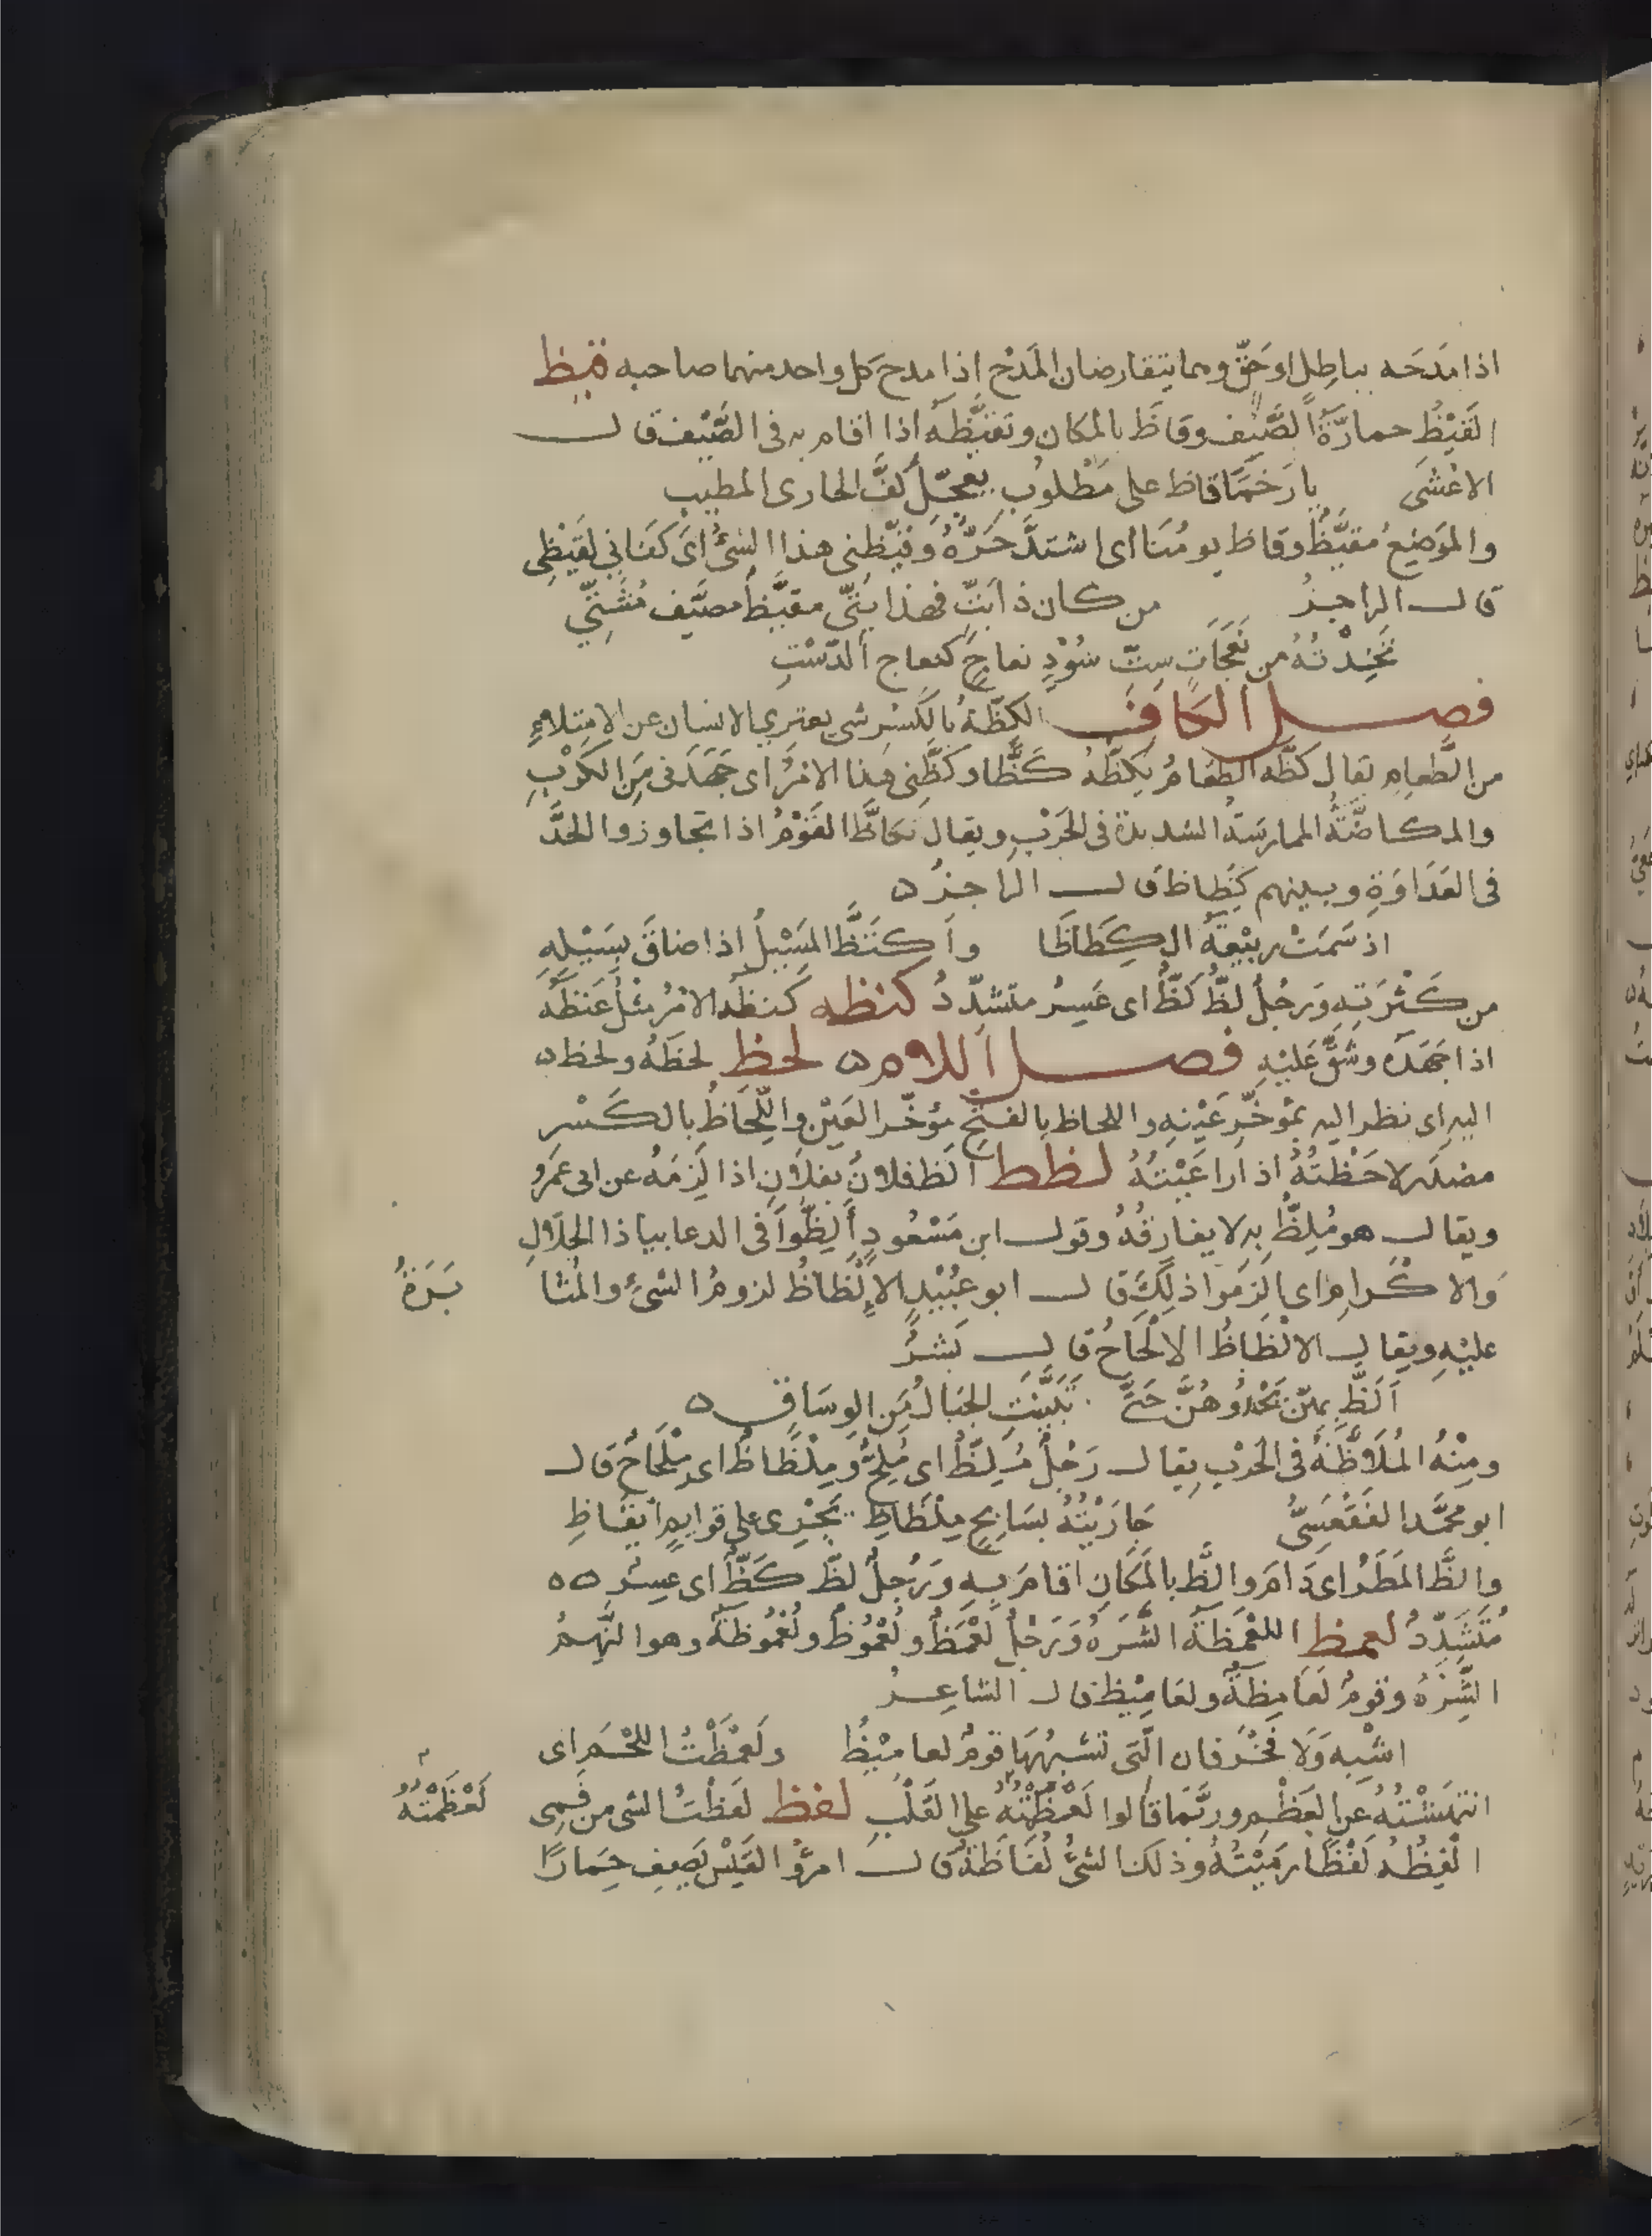 اذا مَدَحَه بباطِل اوحَقّ وهما يتقارضان المَدْح اذا مدح كل واحد منهما صاحبه قيظ
القَيْظُ حمارّةُ الصَّيْف وقاظَ بالمكان وتقيَّظه اذا اقام به فى الصَّيْف قال
الاعْشَى يا رَخَمَّا قاظ على مَطْلوُب يعجّل كفَّ الخارى المطيب
والمَوضِعُ مُقيَّظُ وقاظ يومُنَا اى اشتدَّ حَرّهُ وقيّظنى هذا الشئُ اى كفانِى لقَيْظِى
قال الراجزُ من كان ذابَتّ فهذا بَتّى مقيّظ مصيّف مُشَتِّي
تَخِذْتهُ من نَعَجَات سِتّ سُوْدٍ نعاجٍ كنعاج الدّشْتِ
فصل الكاف الكِظّةُ بالكَسْر شى يعترى الانسان عن الامتلاءِ
من الطّعامِ يقال كظّه الطعامُ يكظّهُ كَظّا وكظّنى هذا الامرُ اى جَهَدَنى مِنَ الكرْبِ
والمكاظّةُ الممارسَةُ الشديدة فى الحَرْبِ ويقال تكاظَّ القَوْمُ اذا تجاوزوا الحدَّ
فى العَدَاوَةِ وبينهم كِظاظ قال الراجزُ ه
اذ سَمَتْ ربيْعَةُ الكِظَاظَا واكتَظَّ المَسِيْلُ اذا ضاقَ بسَيْلِهِ
من كَثْرَتِهِ ورَجُلُ لَظُّ كَظُّ اى عَسِرُ متشدّدُ كنظه كَنظَه الامرُ مثْلُ غَنَظَه
اذا جَهَدَه وشَقَّ عَليْهِ فصل اللام ه لحظ لحظَهُ ولحظ ه
اليهِ اى نظر اليهِ بمُؤخّرِ عَيْنِهِ واللحاظ بالفتح مؤخّر العَيْن واللِّحَاظُ بالكَسْرِ
مصْدَر لاحَظْتُهُ اذا راعَيْتَهُ لظظ الظ فلانُ بفلَانٍ اذا لَزِمَهُ عن ابى عمَرو
ويقال هو مُلِظُّ بهِ لا يفارقُهُ وقول ابن مَسْعُودٍ أَلِظُّوا فى الدعا بياذا الجلَالِ
والاكْرامِ اى الزمَوا ذلِكَ قال ابو عُبَيْدٍ الإلْظاظُ لزومُ الشئِ والمُثا بَرَةُ
عليْهِ ويقال الالْظاظُ الالْحَاحُ قال بَشرُ
اَلَظَّ بهِنّ يَحْدُوهُنَّ حَتَّى تَبَيَّنَتِ الحِيَالُ مِنَ الوِسَاقِ ه
ومِنْهُ المُلَاظّةُ فى الحَرْبِ يقال رَجُلٌ مُلِظُّ اى مُلِحٌ ومِلْظَاظُ اى مِلْحَاحُ قال
ابو مُحمَّد الفَقْعَسِىُّ جَارَيْتُهُ بسَابِحٍ مِلْظَاظِ يَجْرِى على قوايِمٍ ايْقَاظِ
والظَّ المَطَرُ اى دَامَ والظَّ بالمَكَانِ اقامَ بِهِ ورَجُلُ لظّ كَظّ اى عسِرُ ه ه
مُتَشَدِّدُ لعمظ اللعْمَظةُ الشّرَهُ ورَجُلُ لَعْمَظُ ولُعْمُوظُ ولُعْمُوظَةُ وهو النّهِمُ
الشَّرِهُ وقومُ لَعَامِظةُ ولعَامِيْظُ قال الشاعِرُ
اشْبِه وَلَا فخْرَ فان الّتِى تشبهُهَا قومُ لعامِيْظُ ولَعْمَظْتُ اللحْمَ اى
انتهَشْتُهُ عن العَظْمِ ورُبَّمَا قالوا لَعْظَمْتُهُ على القَلْبِ لفظ لفَظْتُ الشى من فمِى لَعْظَمْتُهُ
الْفِظُهُ لَفْظًا رَمَيْتُهُ وذلك الشئُ لُفَاظَةُ قال امرؤُ القَيْس يَصِف حِمَارًا